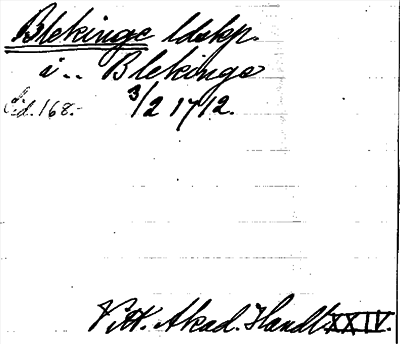 Blekinge ldskp.
i .. Blekinge
Sid. 168.- 3/2 1712.
Vitt. Akad. Handl. XXIV.